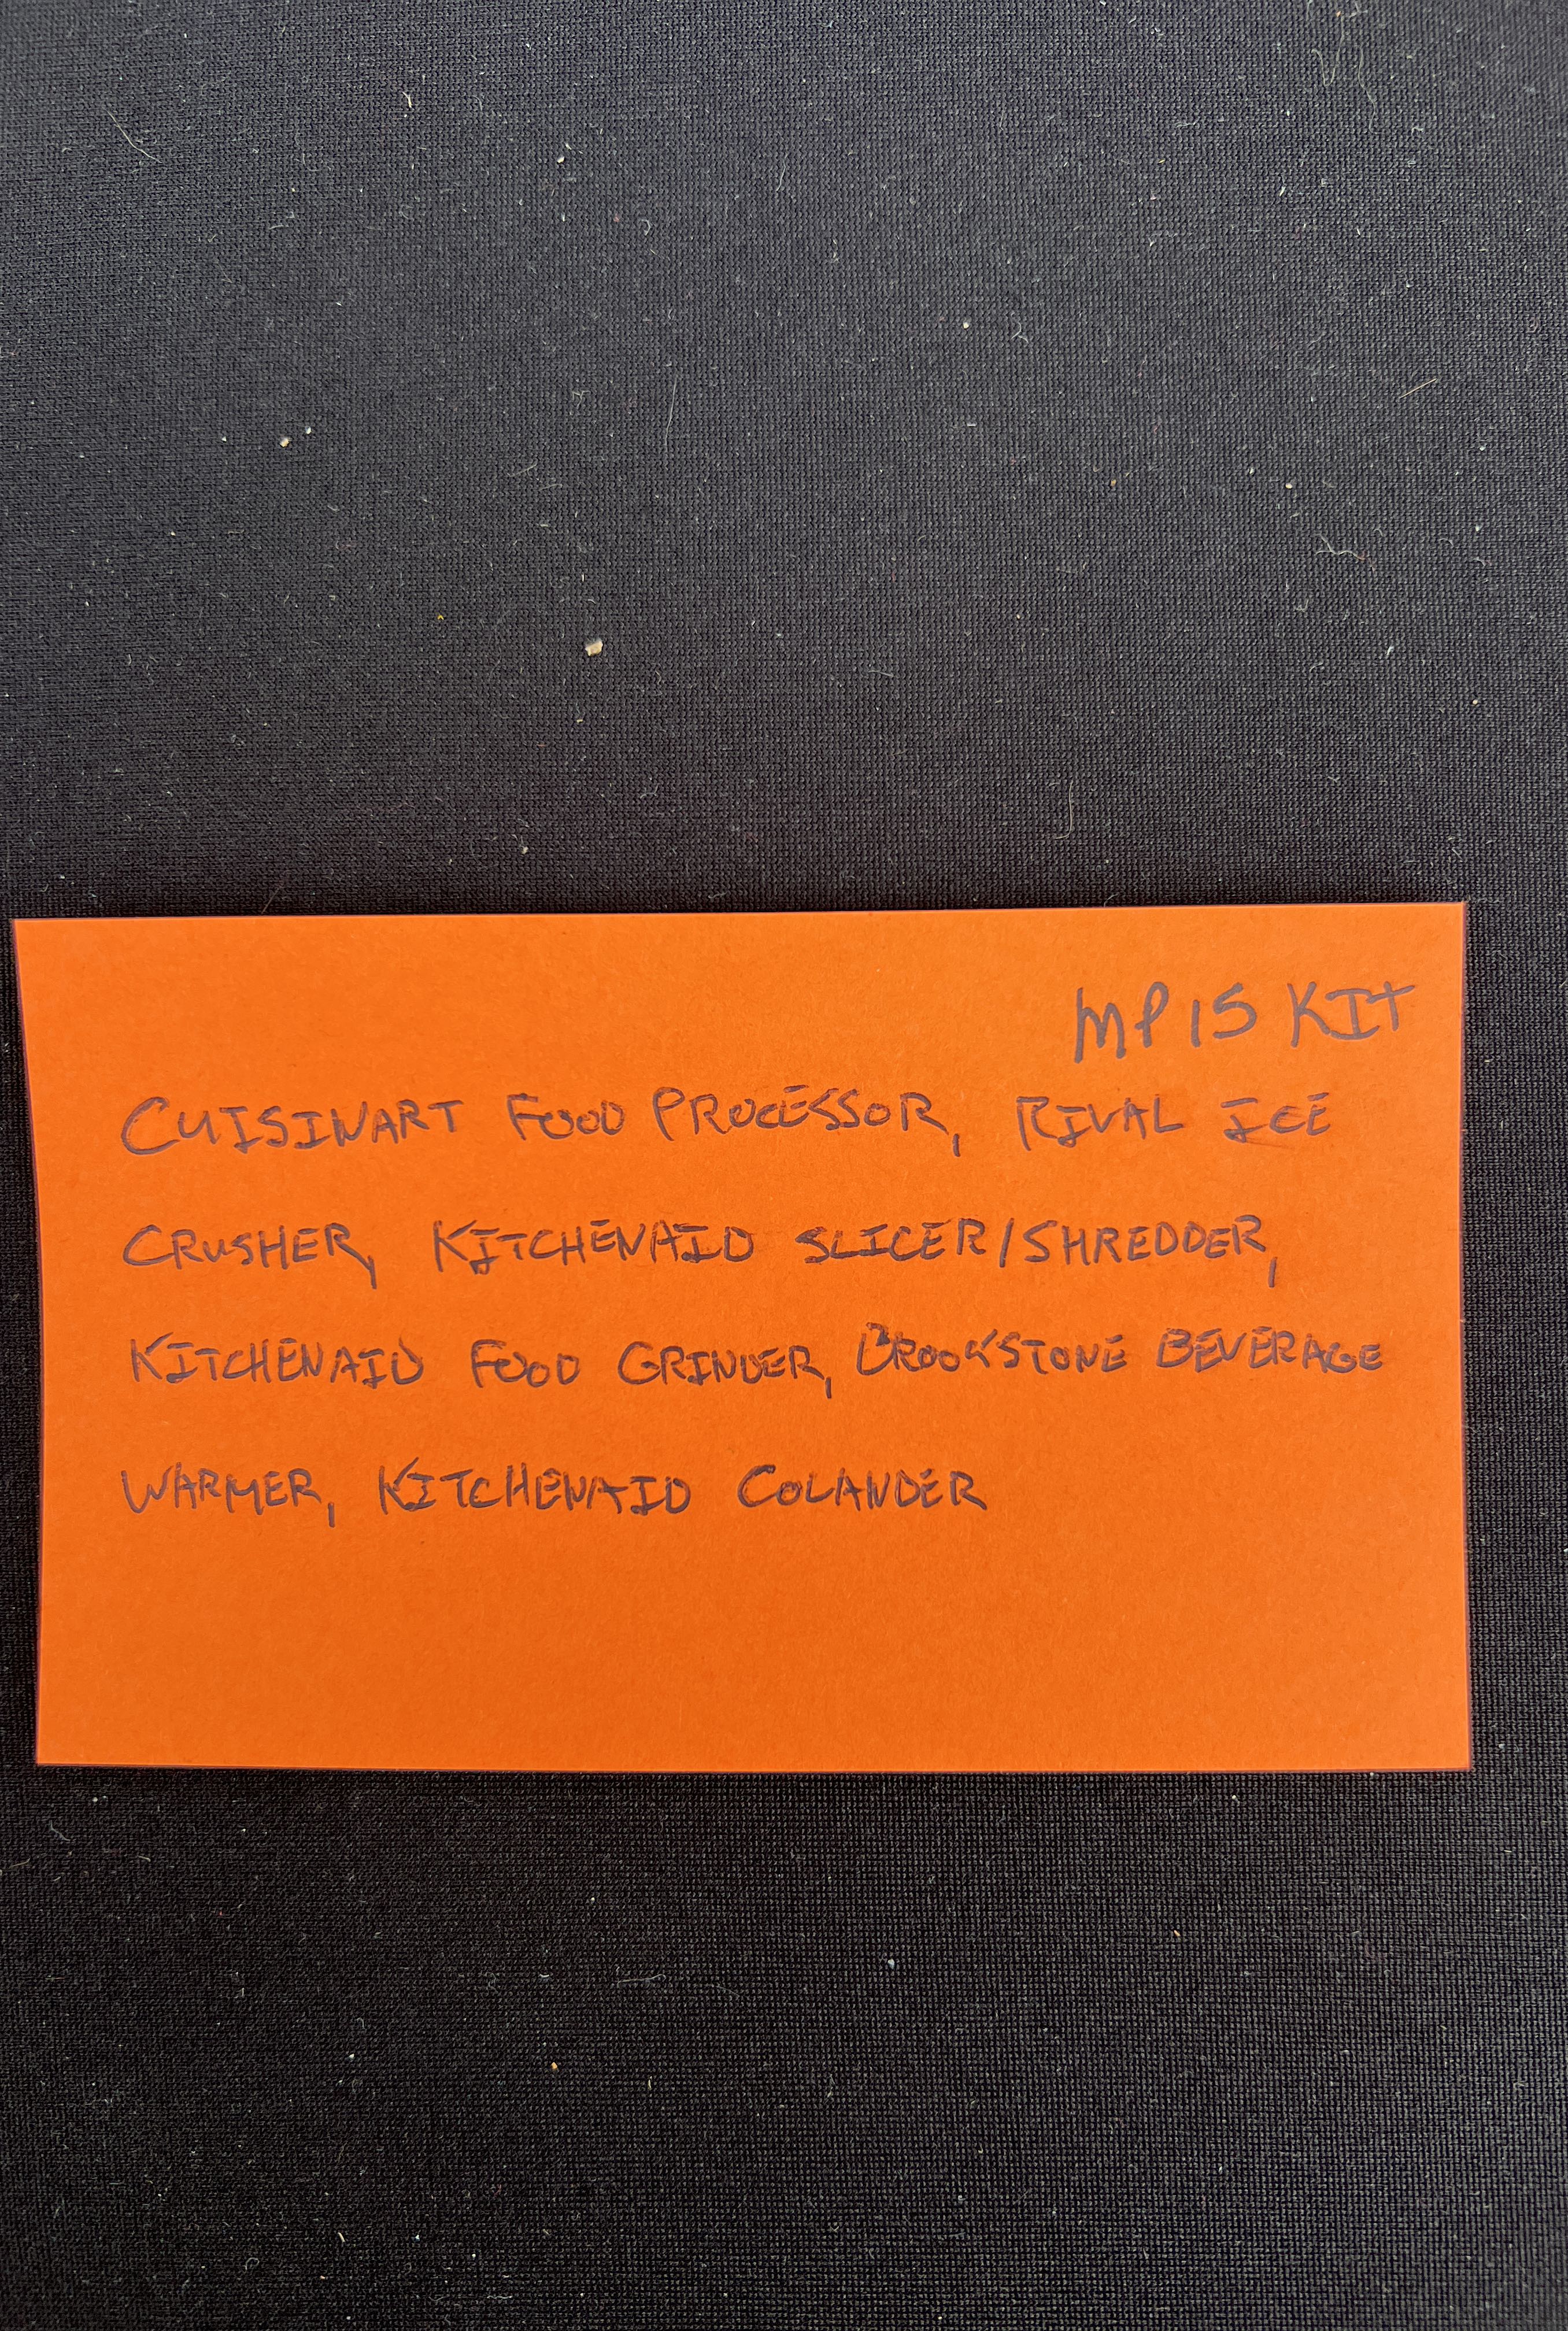 MP 15 KIT
CUISINART FOOD PROCESSOR, RIVAL ICE
CRUSHER, KITCHENAID SLICER/SHREDDER,
KITCHENAID FOOD GRINDER, BROOKSTONE BEVERAGE
WARMER, KITCHENAID COLANDER